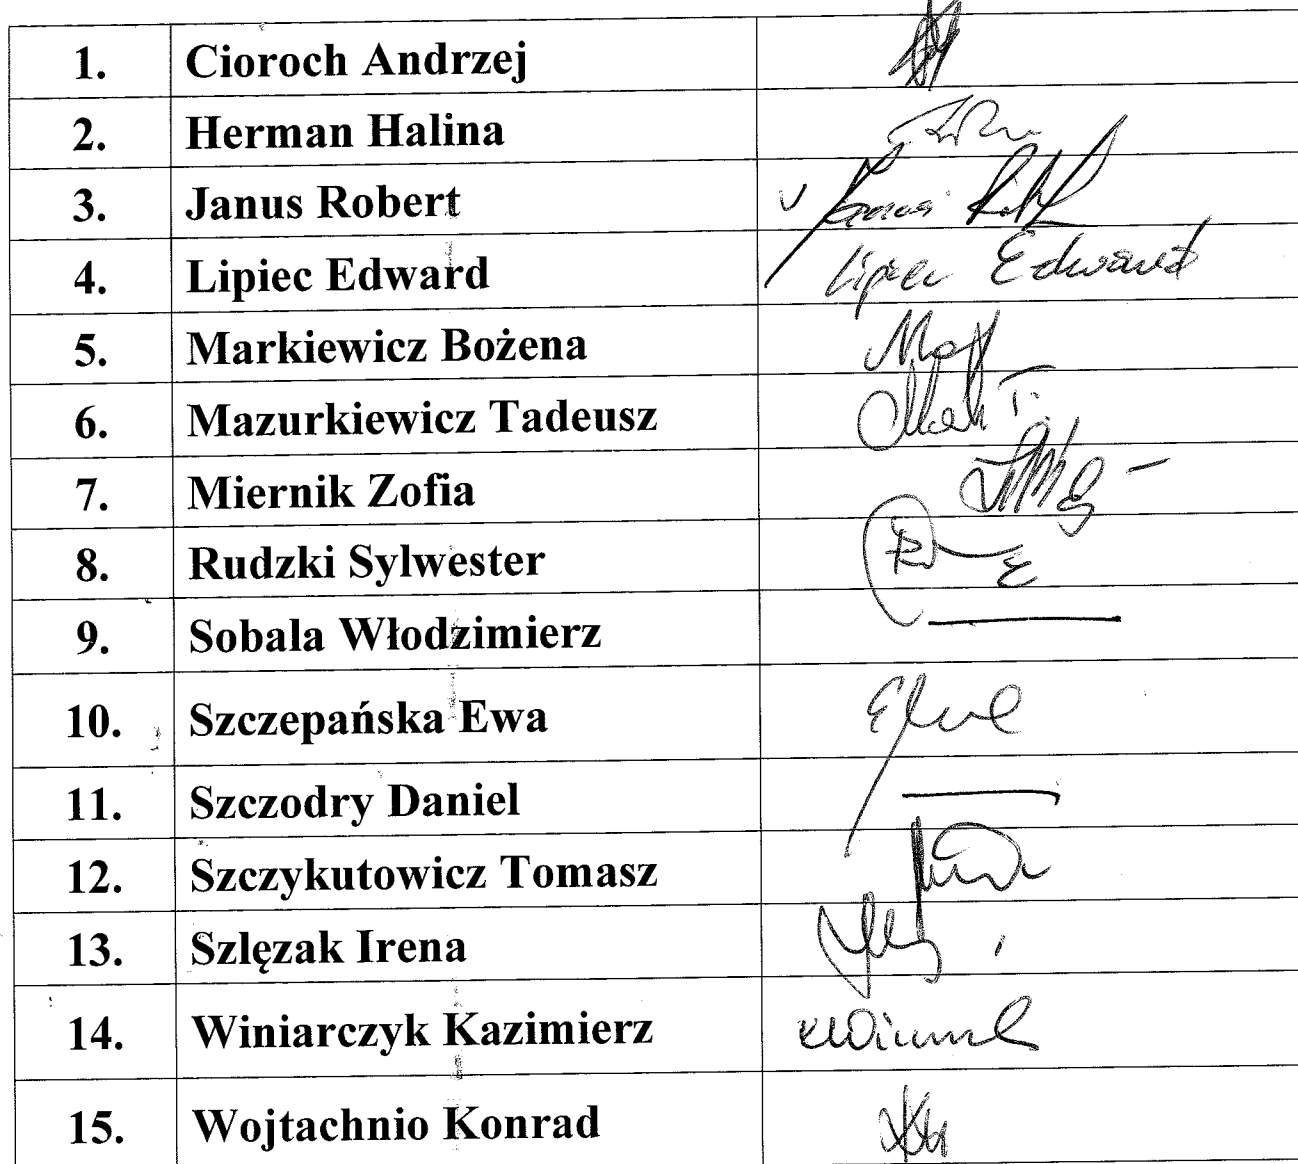 1. Cioroch Andrzej
2. Herman Halina
3. Janus Robert
4. Lipiec Edward Lipiec Edward
5. Markiewicz Bożena
6. Mazurkiewicz Tadeusz
7. Miernik Zofia
8. Rudzki Sylwester
9. Sobala Włodzimierz
10. Szczepańska Ewa
11. Szczodry Daniel
12. Szczykutowicz Tomasz
13. Szlęzak Irena
14. Winiarczyk Kazimierz
15. Wojtachnio Konrad